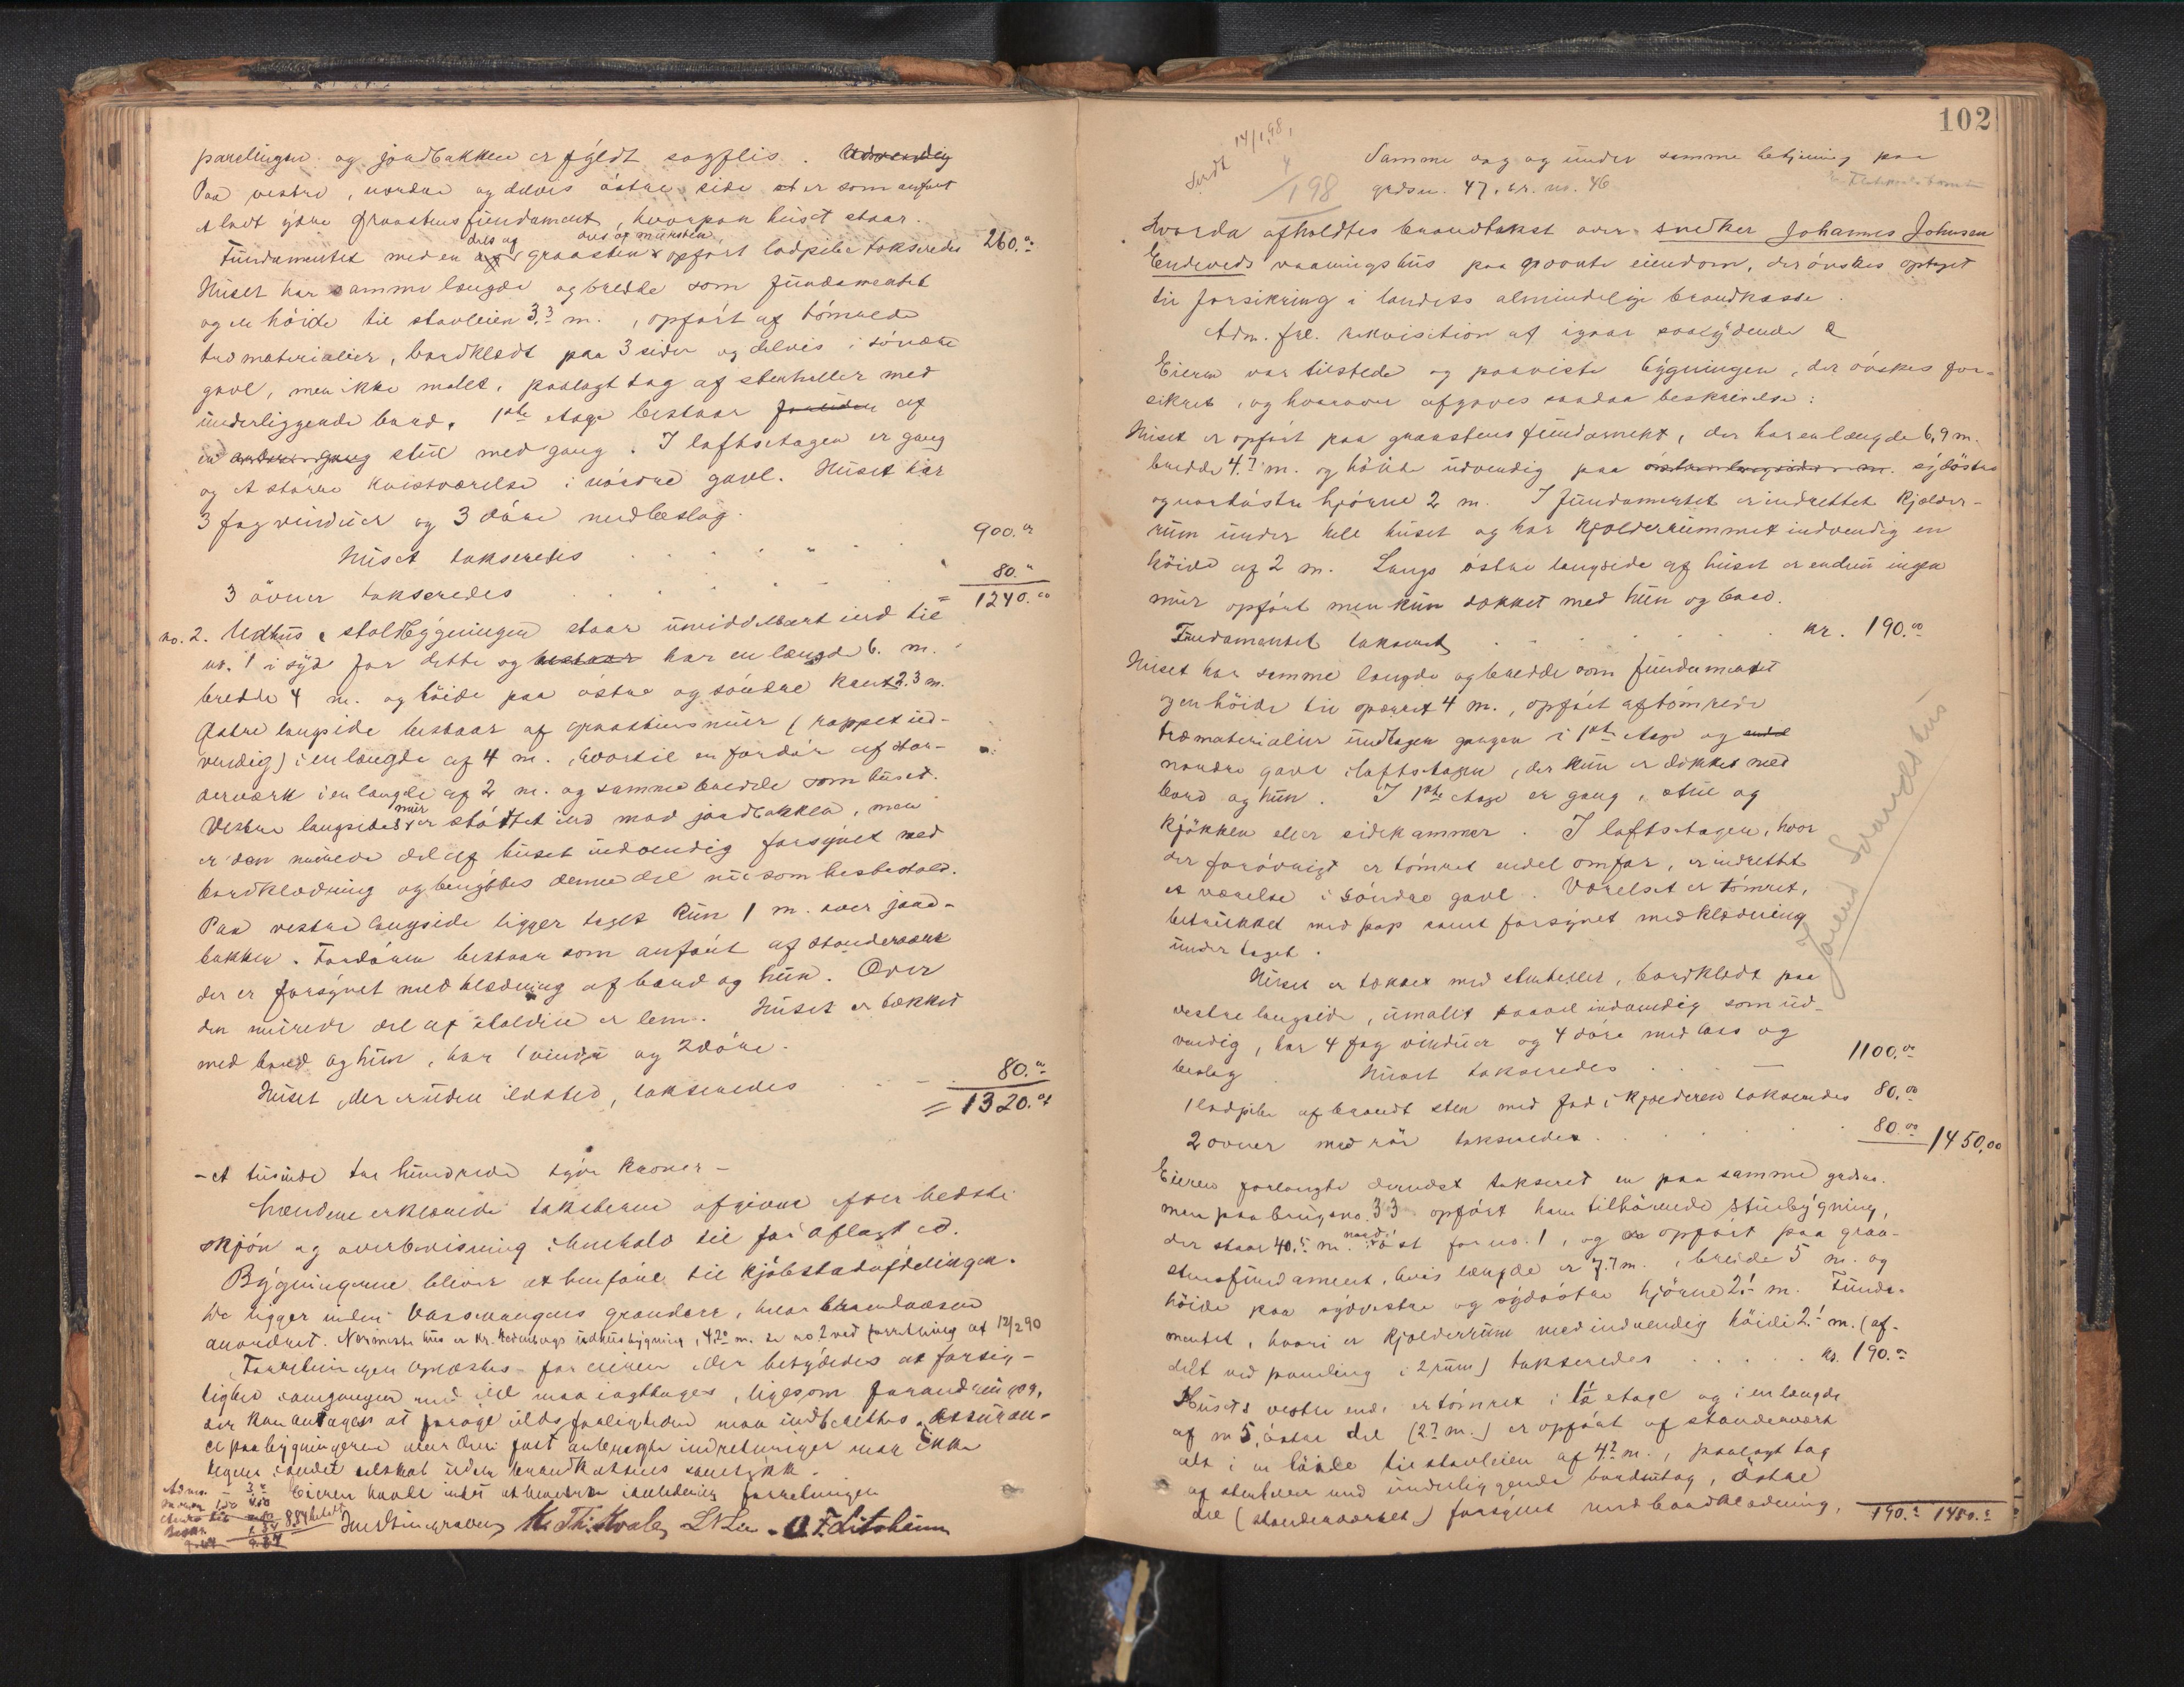 panelingen og jordbakken er fyldt sagflis. Udvendig
Paa vestre, nordre og delvis østre side at er som anført
et lidt ydre graastensfundament, hvorpaa huset staar.
dels og dels af mursten
Fundamentet med en af graasten opført ladpibe takseredes 260.00
Huset har samme længde og bredde som fundamentet
og en høide til stavleien 3.3 m., opført af tømrede
træmaterialier, bordklædt paa 3 sider og delvis i søndre
gavl, men ikke malet, paalagt tag af stenheller med
underliggende bord. 1ste etage bestaar foruden af
en anden gang stue med gang. I loftsetagen er gang
og et større kvistværelse i nordre gavl. Huset har
3 fag vinduer og 3 døre med beslag.
Huset takseredes 900.00
3 ovner takseredes 80.00
= 1240.00
no. 2. Udhus & staldbygningen staar umiddelbart ind til
no. 1 i syd for dette og bestaar har en længde 6. m.
bredde 4 m. og høide paa østre og søndre kant 2.3 m.
Østre langside bestaar af graastensmur (rappet ud-
vendig) i en længde af 4 m., hvortil en fordør af stan-
derværk i en længde af 2 m. og samme bredde som huset.
mur
Vestre langsides er støttet ind mod jordbakken, men
er den murede del af huset indvendig forsynet med
bordklædning og benyttes denne del nu som hestestald.
Paa vestre langside ligger taget kun 1 m. over jord-
bakken. Fordøren bestaar som anført af standerværk
der er forsynet med klædning af bord og hun. Over
den murede del af stalden er lem. Huset er tækket
med bord og hun, har 1 vindu og 2 døre.
Huset, der er uden ildsted, takseredes 80.00
= 1320.00
- et tusinde tre hundrede tyve kroner -
Mændene erklærede taksterne afgivne efter bedste
skjøn og overbevisning i henhold til før aflagt ed.
Bygningerne bliver at henføre til kjøbstadafdelingen.
De ligger inden Vossevangens grændser, hvor brandvæsen
anordnet. Nærmeste hus er udhusbygning, 42.0 m. se no 2 ved forretning af 12/2 90
Forretningen oplæstes for eieren der betydedes at forsig-
tighed i omgangen med ild maa iagttages, ligesom forandringer,
der kan antages at forøge ildsfarligheden maa indberettes. Assuran-
ce paa bygningerne eller deri fast anbragte indretninger maa ikke
tegnes i andet selskab uden brandkassens samtykke.
Eieren havde intet at bemærke i anledning forretningen
M. Th. Kvale, L. Lie. O. F. Litsheim
102
Sendt 14/1 98,
4/198
Samme dag og under samme betjening paa
grdsn. 47, br. no. 46
Hvorda afholdtes brandtakst over snedker Johannes Johnsen
Endeveds vaaningshus paa nævnte eiendom, der ønskes optaget
til forsikring i landets almindelige brandkasse.
Adm. frl. rekvisition af igaar saalydende &
Eieren var tilstede og paaviste bygningen, der ønskes for-
sikret, og hvorover afgaves saadan beskrivelse:
Huset er opført paa graastens fundament, der har en længde 6,9 m.
bredde 4.7 m. og høide udvendig paa østre langside m. sydøstre
og nordøstre hjørne 2 m. I fundamentet er indrettet kjælder-
rum under hele huset og har kjælderrummet indvendig en
høide af 2 m. Langs østre langside af huset er endnu ingen
mur opført men kun dækket med hun og bord.
Fundamentet takseret kr. 190.00
Huset har samme længde og bredde som fundamentet
og en høide til opærret 4 m., opført af tømrede
træmaterialier undtagen gangen i 1ste etage og endel
nordre gavl i loftsetagen, der kun er dækket med
bord og hun. I 1ste etage er gang, stue og
kjøkken eller sidekammer. I loftsetagen, hvor
der forøvrigt er tømret endel omfar, er indrettet
et værelse i søndre gavl. Værelset er tømret,
betrukket med pap samt forsynet med klædning
under taget.
Huset er tækket med stenheller, bordklædt paa
vestre langside, umalet saavel indvendig som ud-
vendig, har 4 fag vinduer og 4 døre med laas og
beslag. Huset takseredes 1100.00
1 ladpibe af brændt sten med fod i kjælderen takseredes 80.00
2 ovner med rør takseredes 80.00 1450,00
Eieren forlangte dernæst takseret en paa samme grdsn.
men paa brugsno. 33 opført ham tilhørende stuebygning,
der staar 40.5 m. nordøst for no. 1, og er opført paa graa-
stensfundament, hvis længde er 7.7 m., bredde 5 m. og
høide paa sydvestre og sydøstre hjørne 2.1 m. Funda-
mentet, hvori er kjælderrum med indvendig høide 2.1 m. (af-
delt ved paneling i 2 rum) takseredes kr. 190.00
Husets vestre ende er tømret i 1ste etage og i en længde
af m 5, østre del (2.7 m.) er opført af standerværk
alt i en høide til stavleien af 4.2 m., paalagt tag
af stenheller med underliggende bordtag, østre
del (standerværket) forsynet med bordklædning,
190.00 1450.00